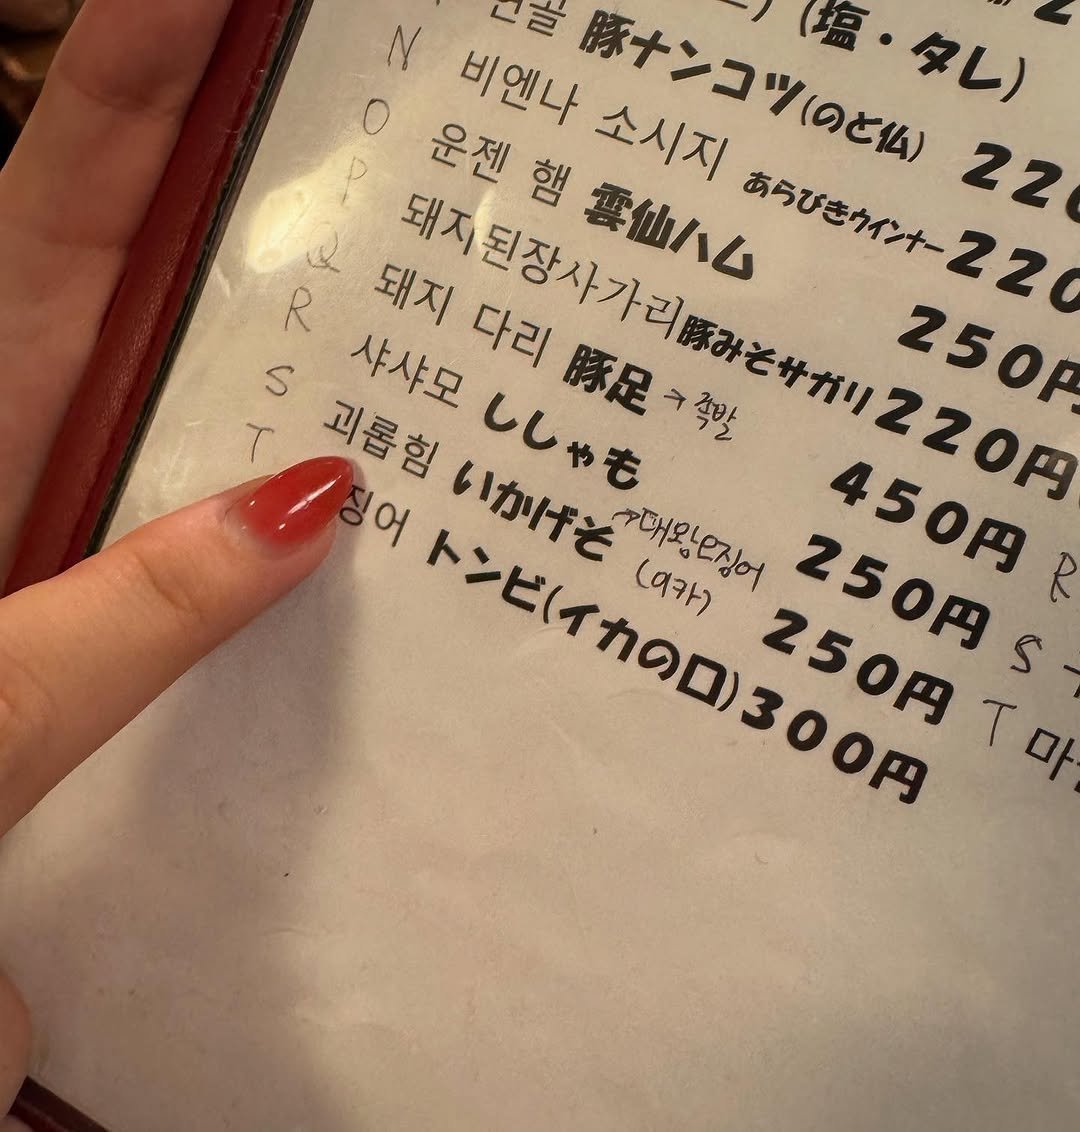 (塩・タレ)
연골 豚ナンコツ(のど仏) 220
N 비엔나 소시지 あらびきウインナー 220
O 운젠 햄 雲仙ハム 250円
P 돼지된장사가리 豚みそサガリ 220円
Q 돼지 다리 豚足 → 족발 450円
R 샤샤모 ししゃも 250円
S 괴롭힘 いかげそ → 대왕오징어 (이카) 250円
T 징어 トンビ(イカの口) 300円
R
S
T 마